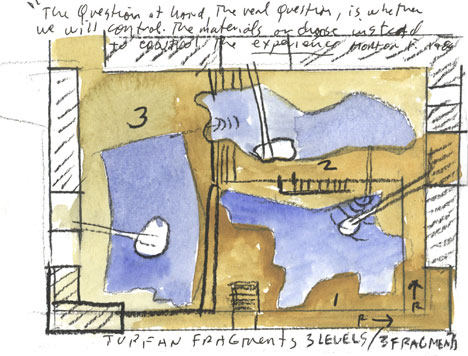 "The Question at hand, The real Question, is whether
we will control. The materials or choose instead
to control The experience Morton F.
3
2
1
R →
R
TURFAN FRAGMENTS 3 LEVELS/3 FRAGMENTS